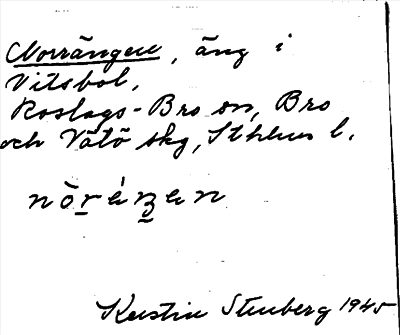 Norrängen, äng i
Vitsbol,
Roslags-Bro sn, Bro
och Vätö skg, Sthlms l.
nòr̲éʒ̲en
Kerstin Stenberg 1945